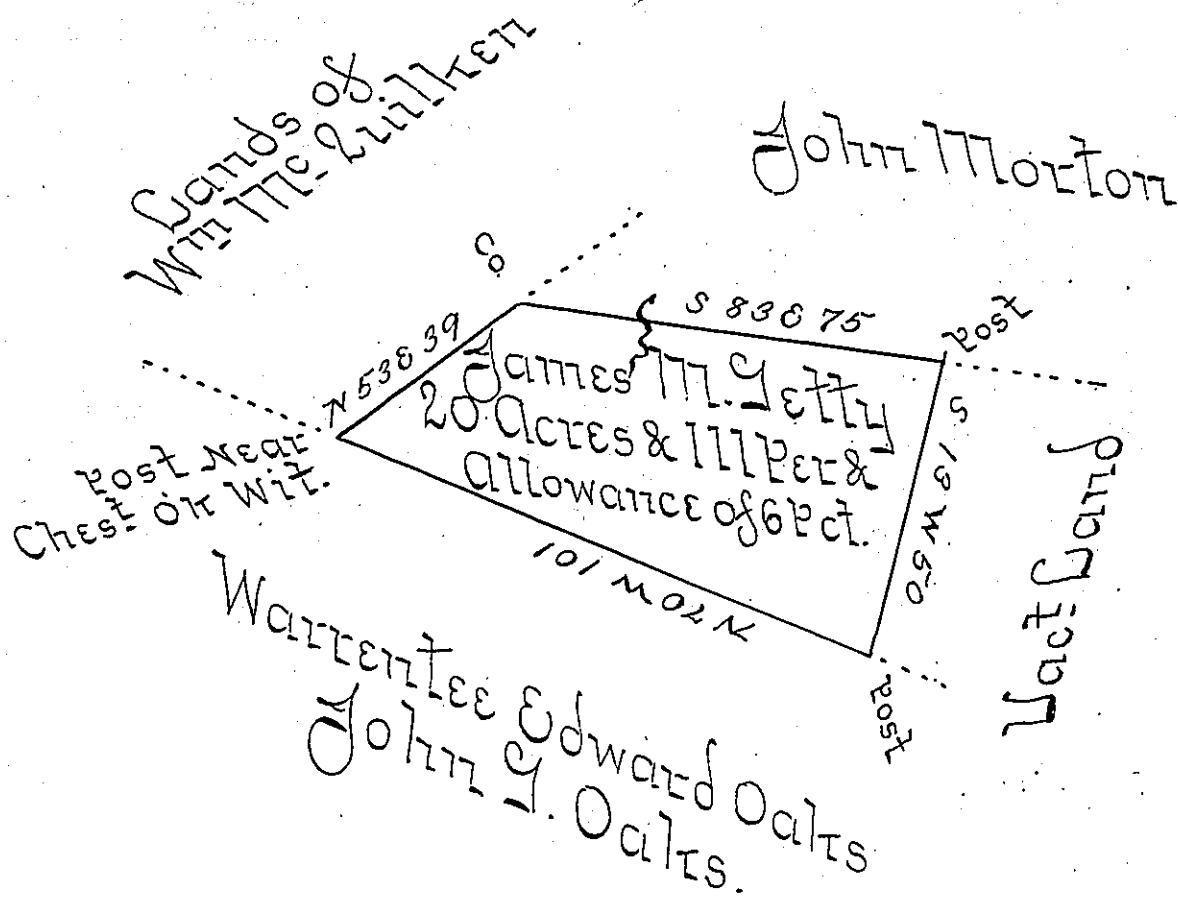 Lands of
Wm Mc Quilken
John Morton
Co
N 53 E 39
S 83 E 75
Post
James M. Getty
20 Acres & 111 Per &
Allowance of 6 Pct.
S 13 W 50
Vact Land
Post Near
Chest Ok Wit.
N 70 W 101
Post
Warrentee Edward Oaks
John G. Oaks.